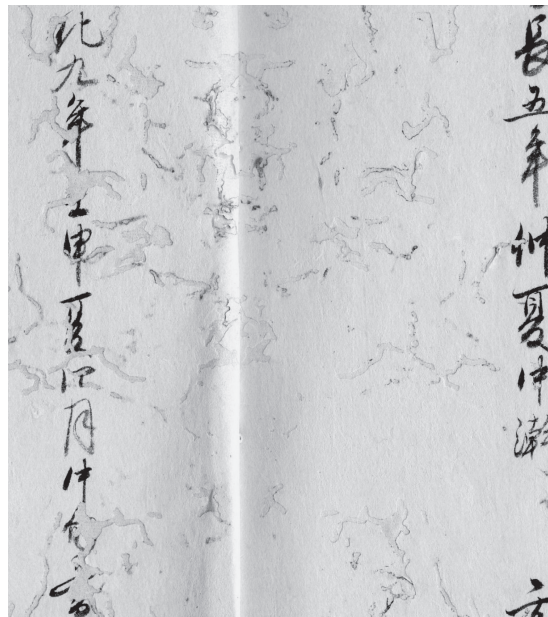 長五年仲夏中澣
化九年壬申夏四月中